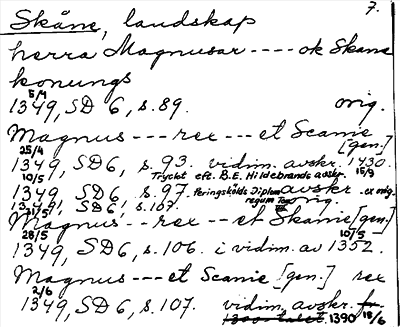 7.
Skåne, landskap
herra Magnusar ---- ok Skana
konungs
5/4
1349, SD 6, s. 89. orig.
Magnus --- rex --- et Scanie [gen.]
25/4
1349, SD6, s. 93. vidim. avskr. 1430.
10/5 Tryckt eft. B.E. Hildebrands avskr. 15/9
1349, SD 6, s. 97. Peringskölds Diplom avskr. ex orig.
21/5 regum Tom
1349, SD 6, s. 107. orig.
Magnus -- rex -- et Skanie [gen]
28/5 10/5
1349, SD6, s. 106. i vidim. av 1352.
Magnus --- et Scanie [gen.] rex
2/6
1349, SD 6, s. 107. vidim. avskr. fr.
1300-talet 1390 18/6